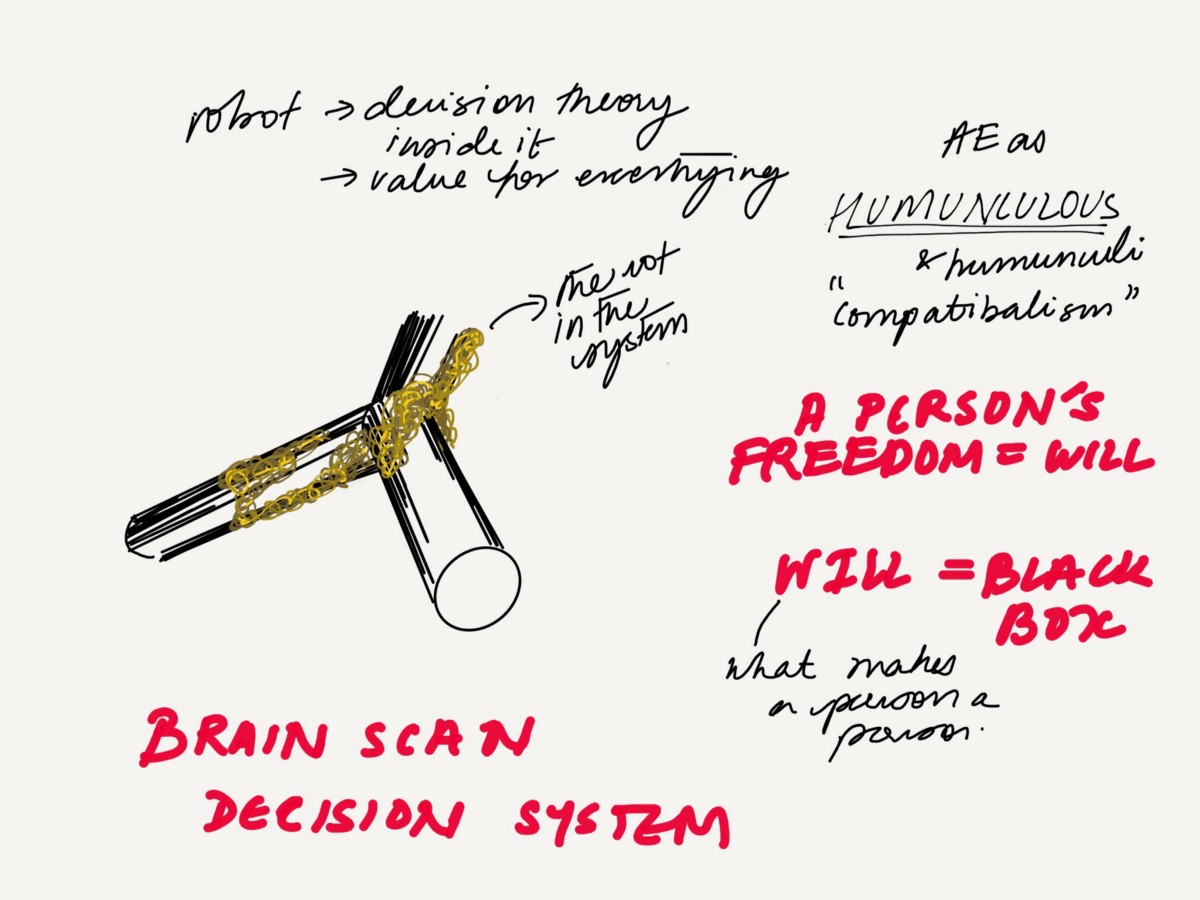 robot → decision theory
inside it
→ value for everything
AE as
HUMUNCULOUS
& humunculi
"compatibalism"
the rot
in the
system
A PERSON'S
FREEDOM = WILL
WILL = BLACK
BOX
what makes
a person a
person.
BRAIN SCAN
DECISION SYSTEM